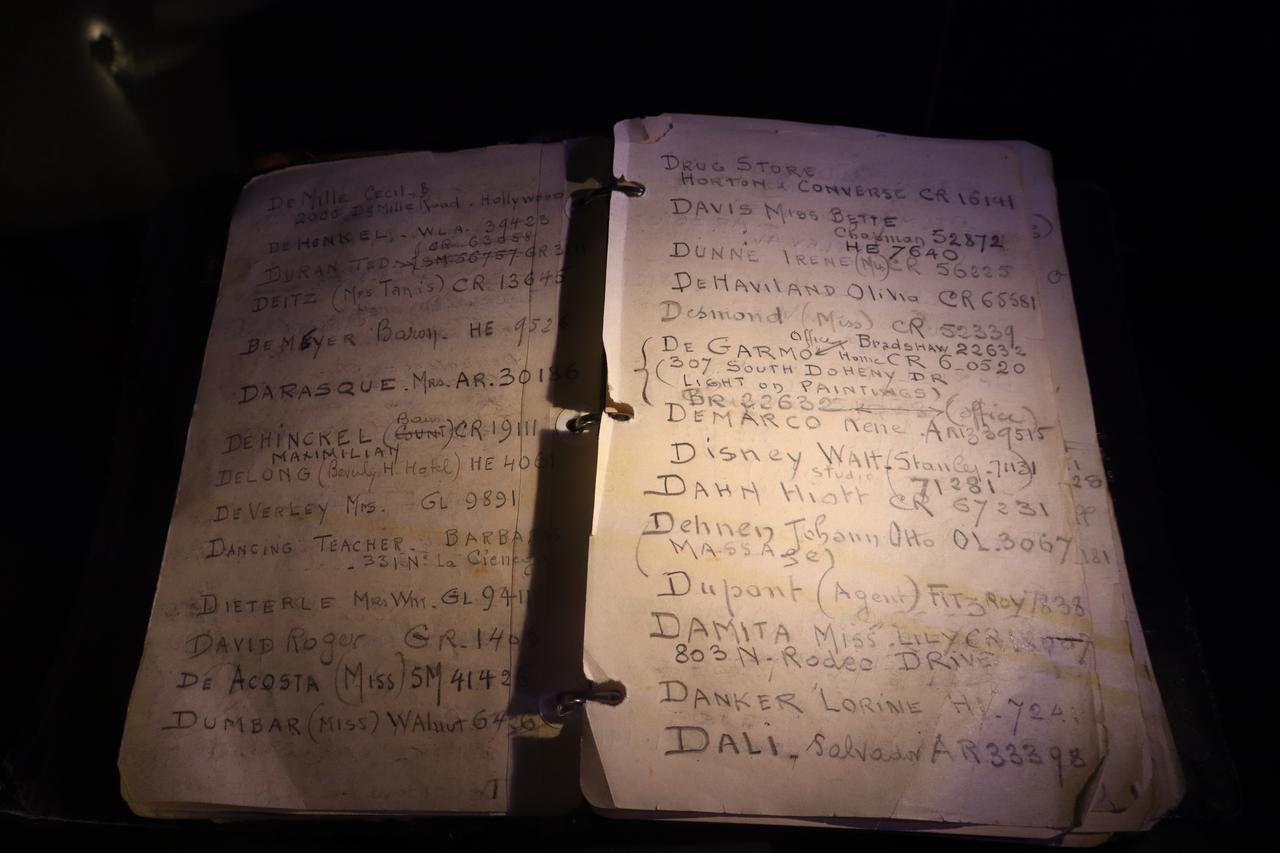 DeMille Cecil. B
2000 DeMille Road. Hollywood
DEHENKEL. - W.L.A. 39423
CR 63058
DURAN TED. SM 56757 GR
DEITZ (Mrs Tanis) CR. 13645
DE MEYER Baron. HE 952
DARASQUE. Mrs. AR. 30186
Baron
DEHINCKEL (COUNT) CR 19111
MAXIMILIAN
DELONG (Beverly. H. Hotel) HE 4061
DEVERLEY Mrs. GL 9891
DANCING TEACHER. BARBA
- 331 N. La Cieneg
DIETERLE Mrs Wm. GL 9411
DAVID Roger GR. 140
DE ACOSTA (Miss) SM 4142
DUMBAR (MISS) WAlnut 64
DRUG STORE
HORTON & CONVERSE CR 16141
DAVIS Miss BETTE
Chapman 52872
HE 7640
DUNNE IRENE (Nu) CR 56225
DEHAVILAND Olivia CR 65581
Desmond (Miss) CR 52339
Office Bradshaw 22632
DE GARMO Home CR 6-0520
(307 SOUTH DOHENY DR
LIGHT ON PAINTINGS)
BR 22632 (office)
DEMARCO Rene. AR
Disney WALT. (Stanley. 71131
Studio 71281
DAHN Hiott CR 67231
Dehnen Johann Otto OL. 3067
(MASSAGE)
Dupont (Agent) FITZROY 7838
DAMITA Miss LILY CR
803 N. Rodeo DRIVE
DANKER LORINE H. 724
DALI - Salvador AR 33398